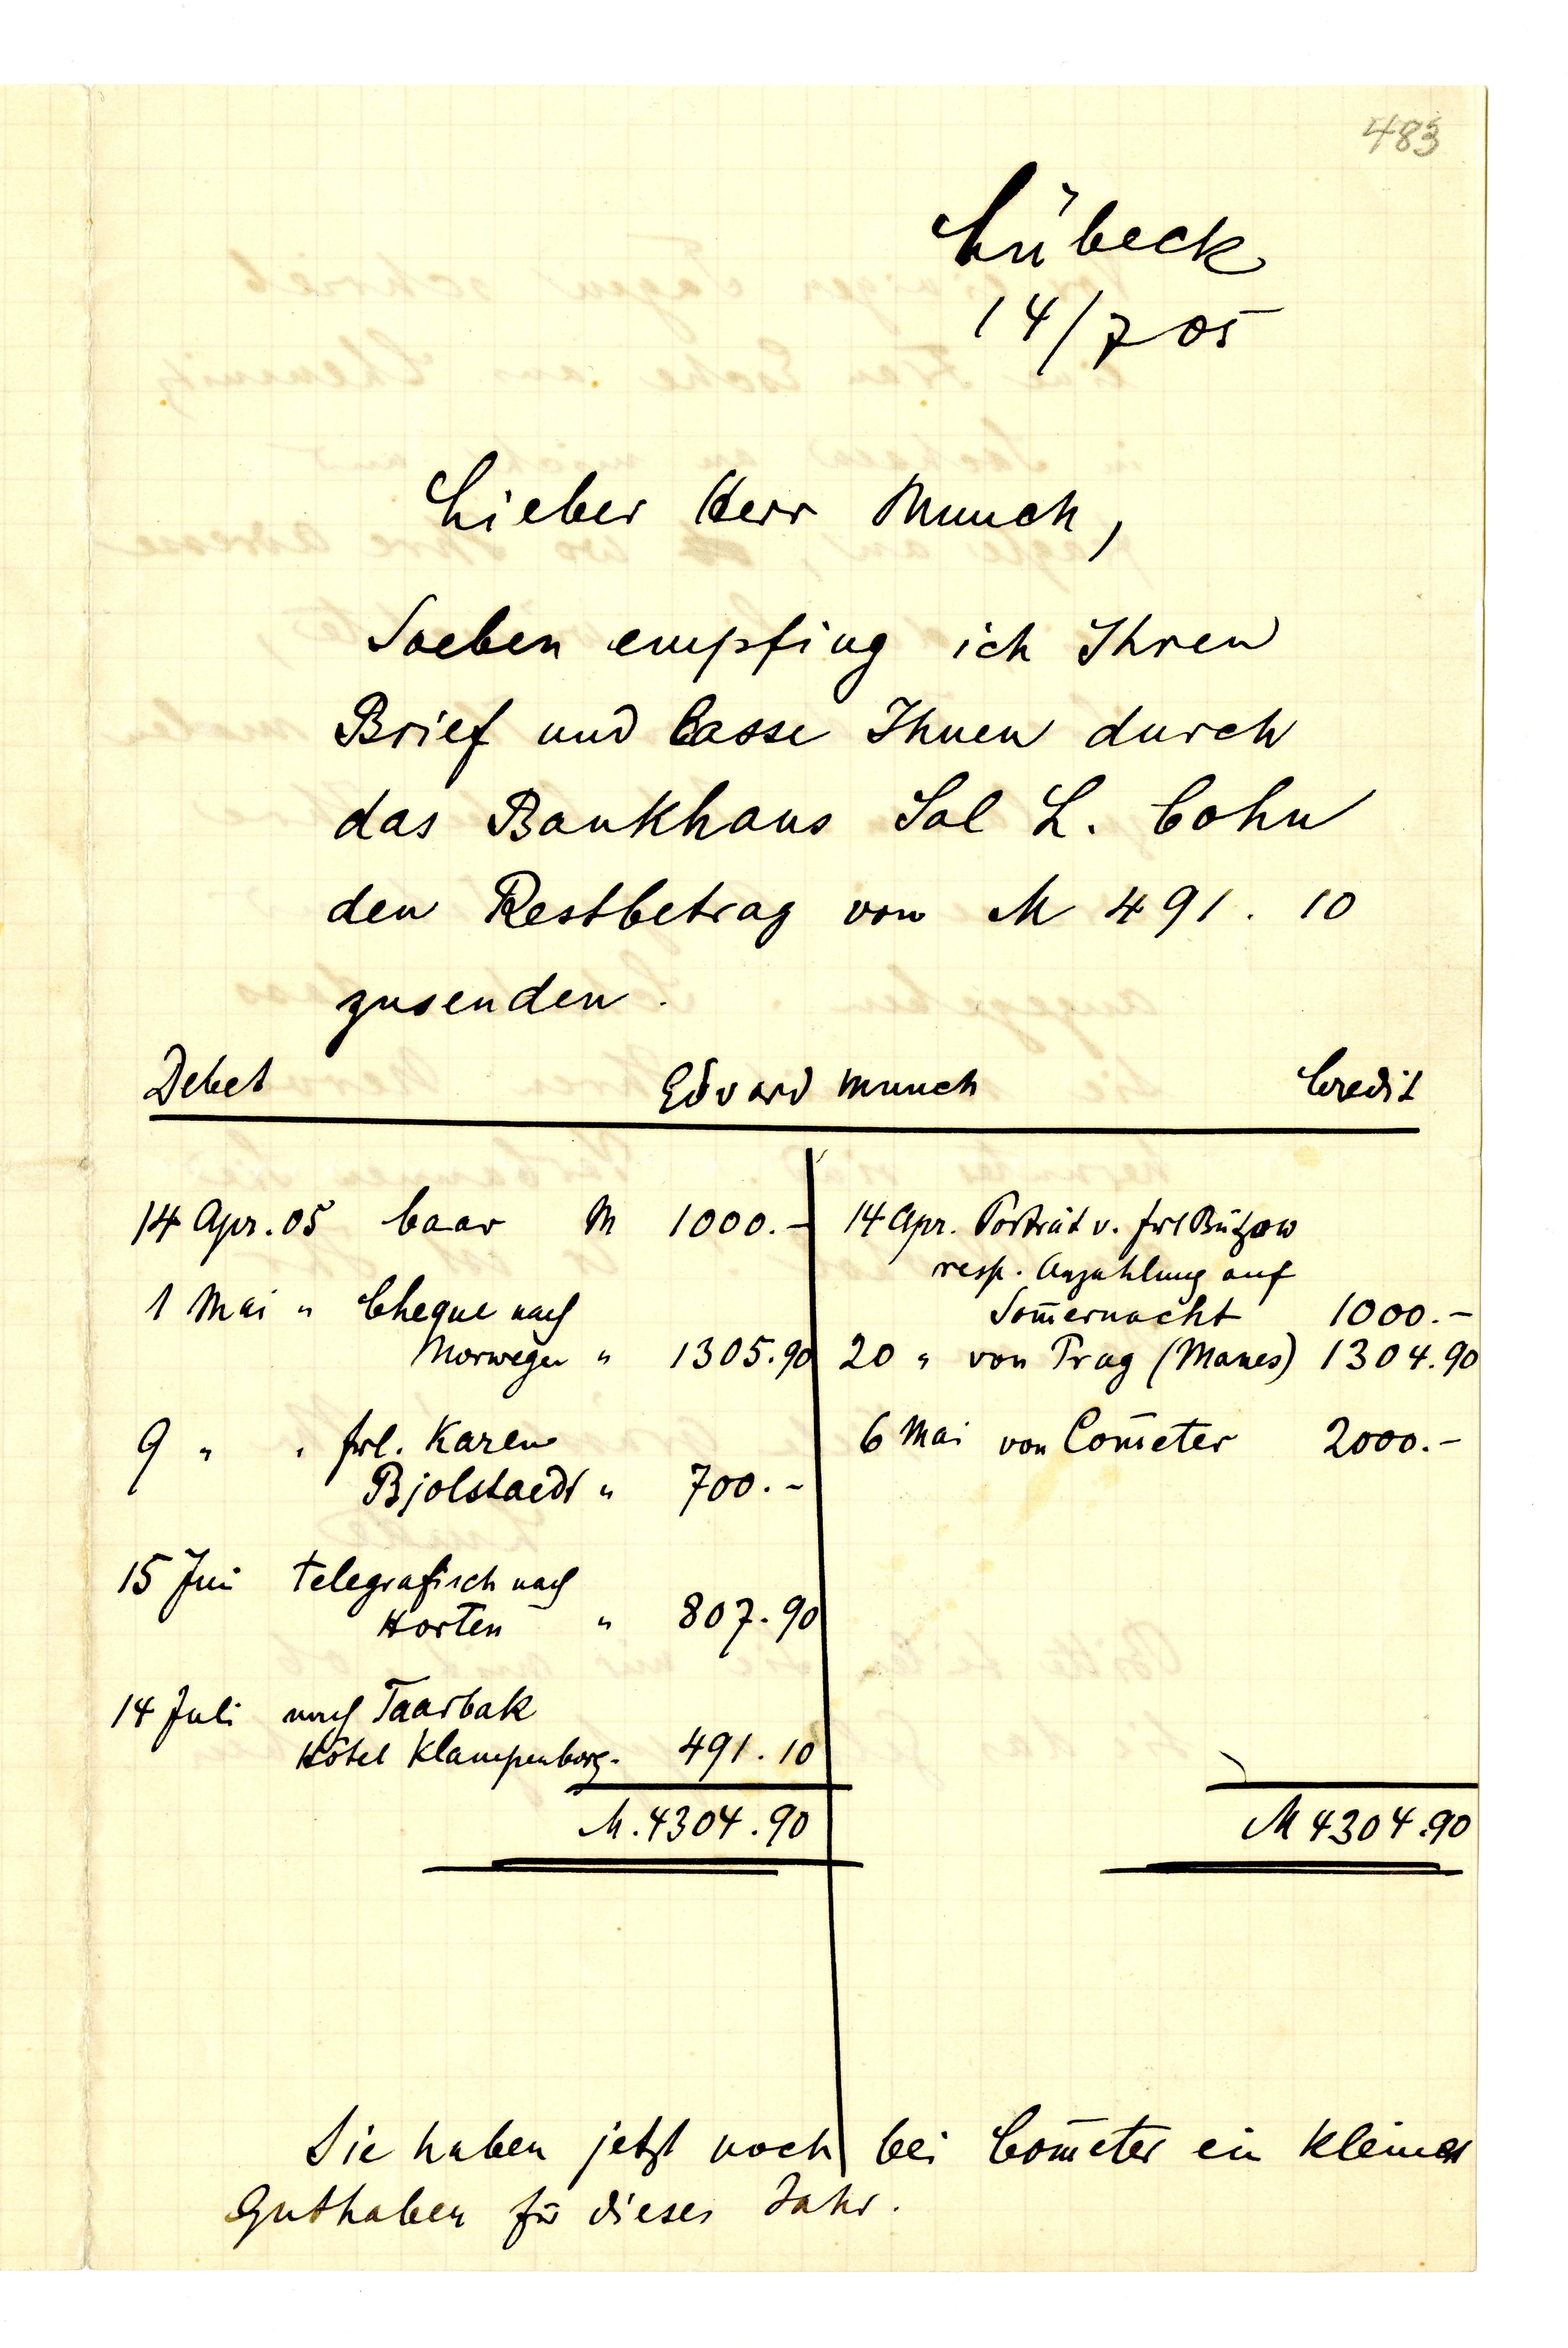 483
Lübeck
14/7 05
Lieber Herr Munch,
Soeben empfing ich Ihren
Brief und lasse Ihnen durch
das Bankhaus Sal L. Cohn
den Restbetrag von M 491. 10
zusenden.
Debet Edvard Munch Credit
14 Apr. 05 baar M 1000.- 14 Apr. Porträt v. frl Bützow
resp. Anzahlung auf
1 Mai " Cheque nach Som̅ernacht 1000.-
Norwegen " 1305.90 20 " von Prag (Manes) 1304.90
9 " " frl. Karen 6 Mai von Com̅eter 2000.-
Bjolstaedt " 700.-
15 Juni telegrafisch nach
Horten " 807.90
14 Juli nach Taarbak
Hôtel Klampenborg. 491.10
M. 4304.90 M 4304.90
Sie haben jetzt noch bei Com̅eter ein kleines
Guthaben für dieses Jahr.